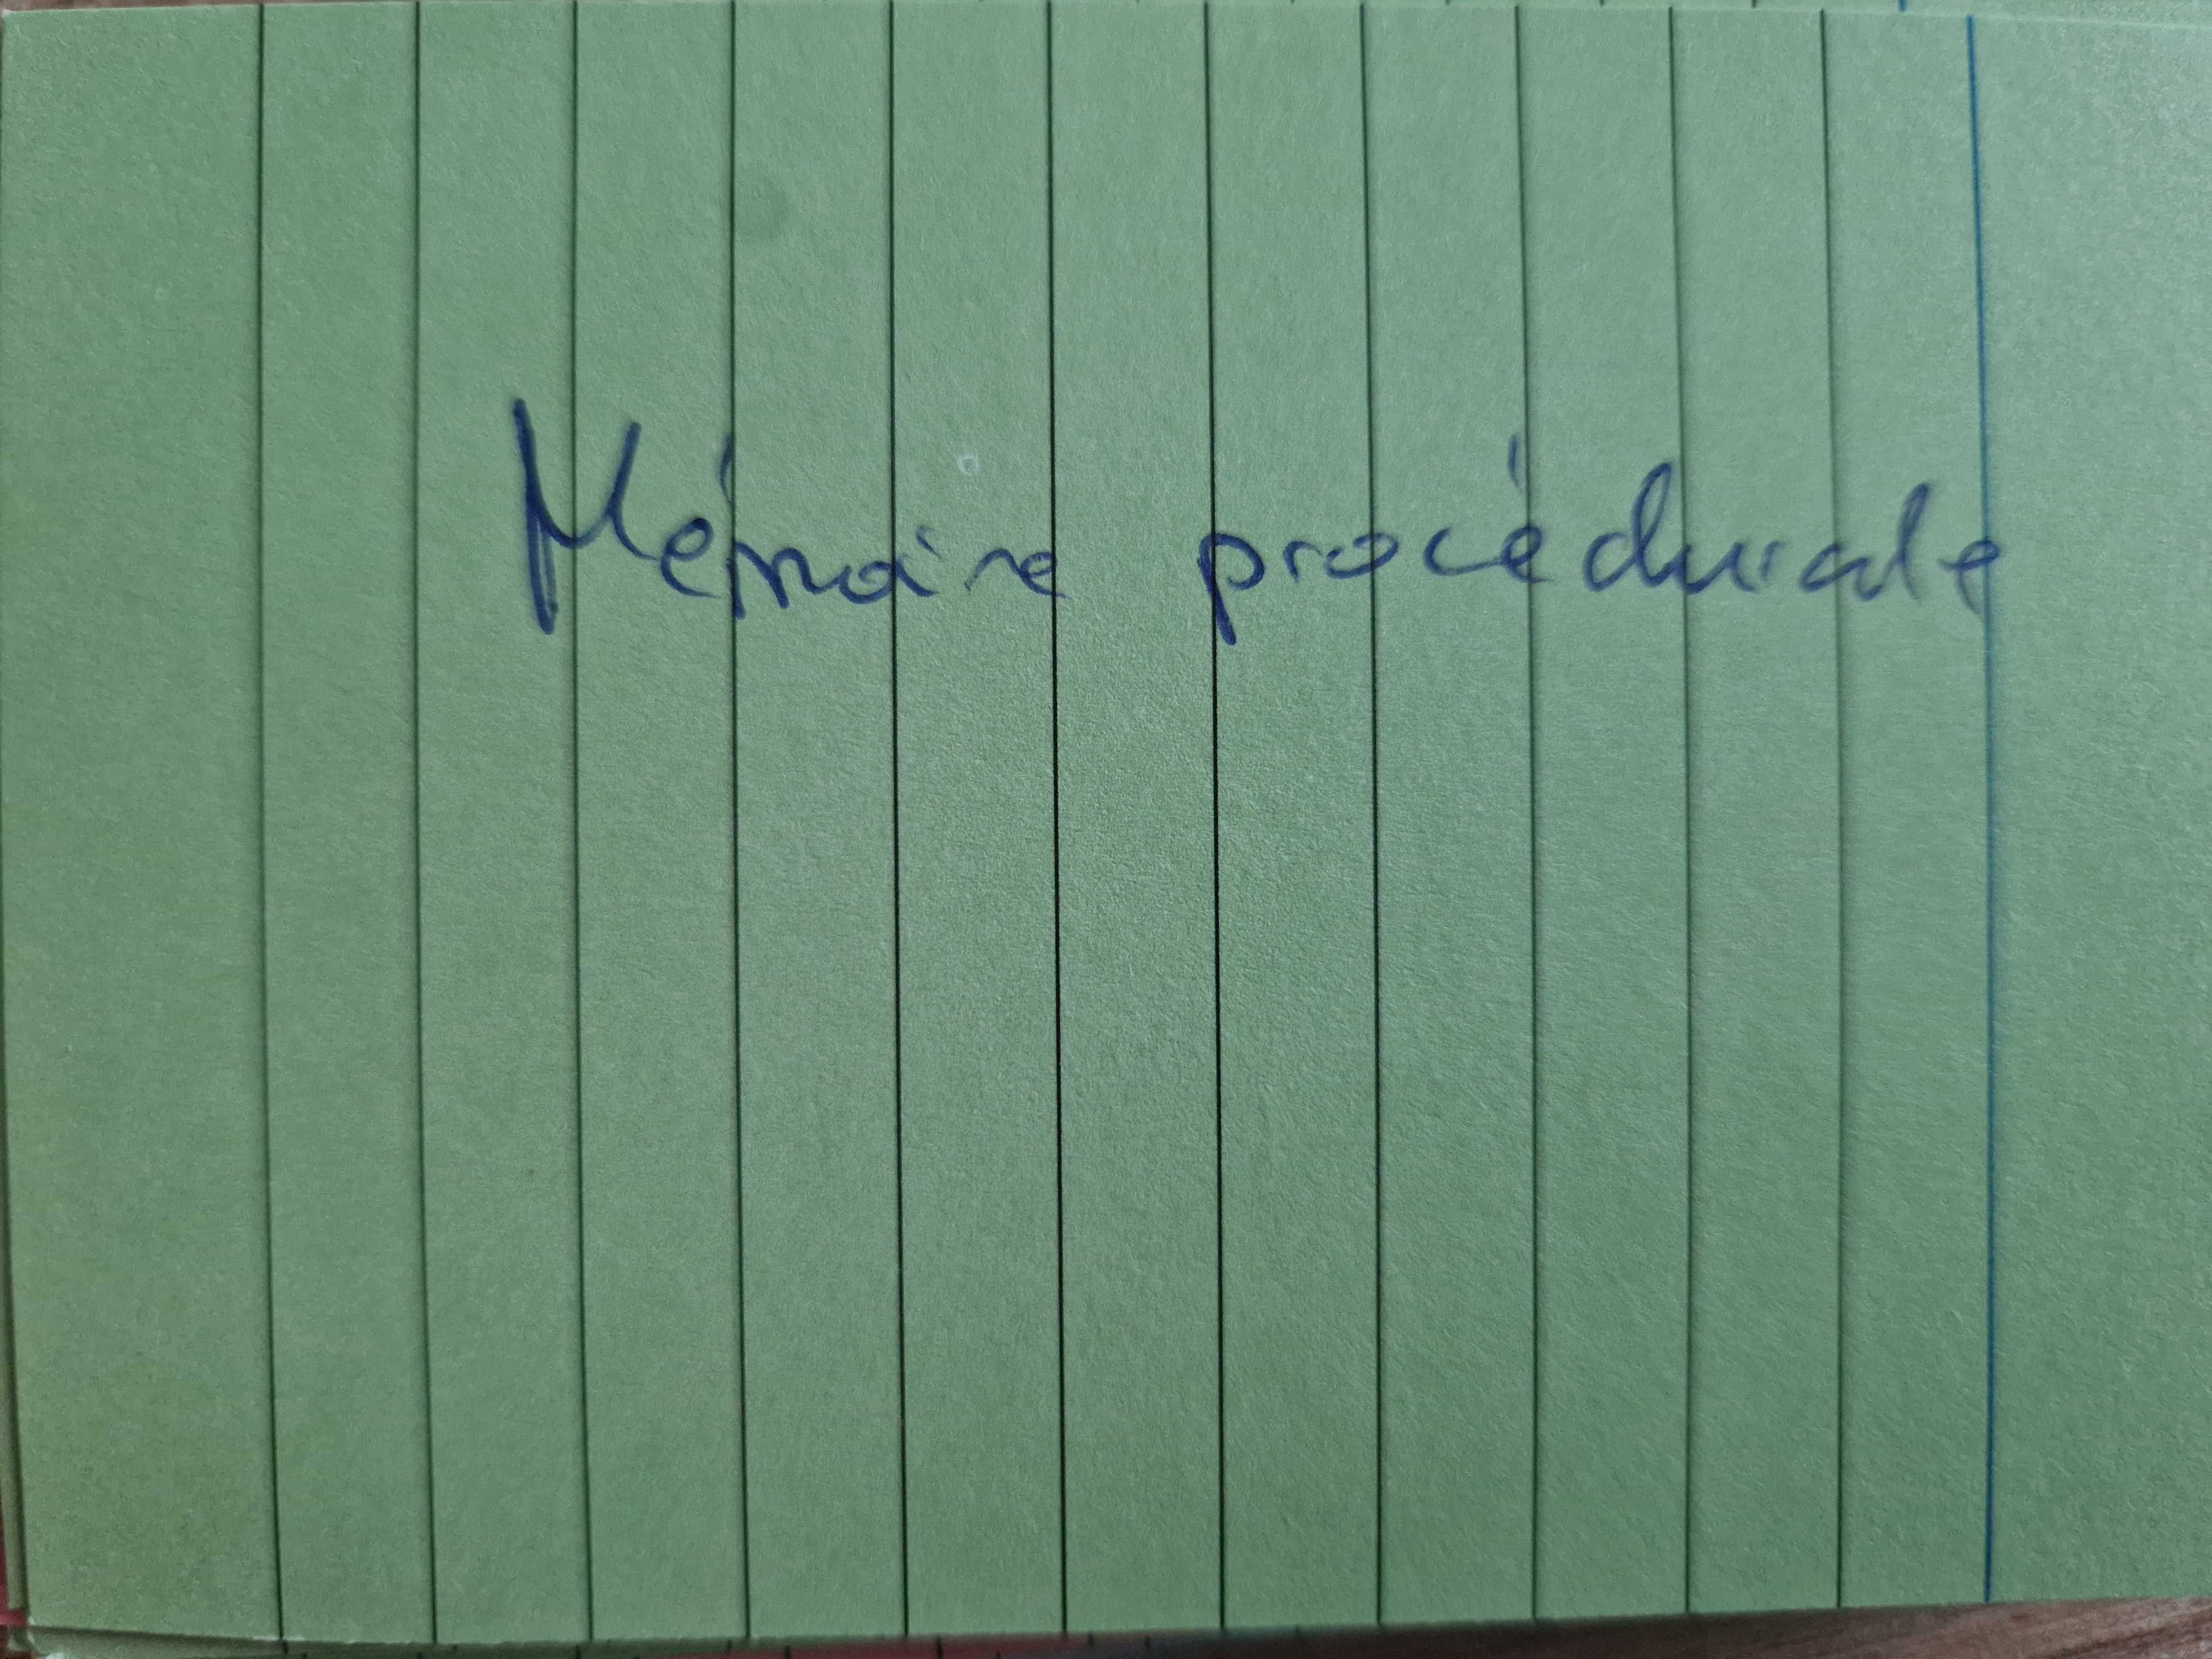 Mémoire procédurale